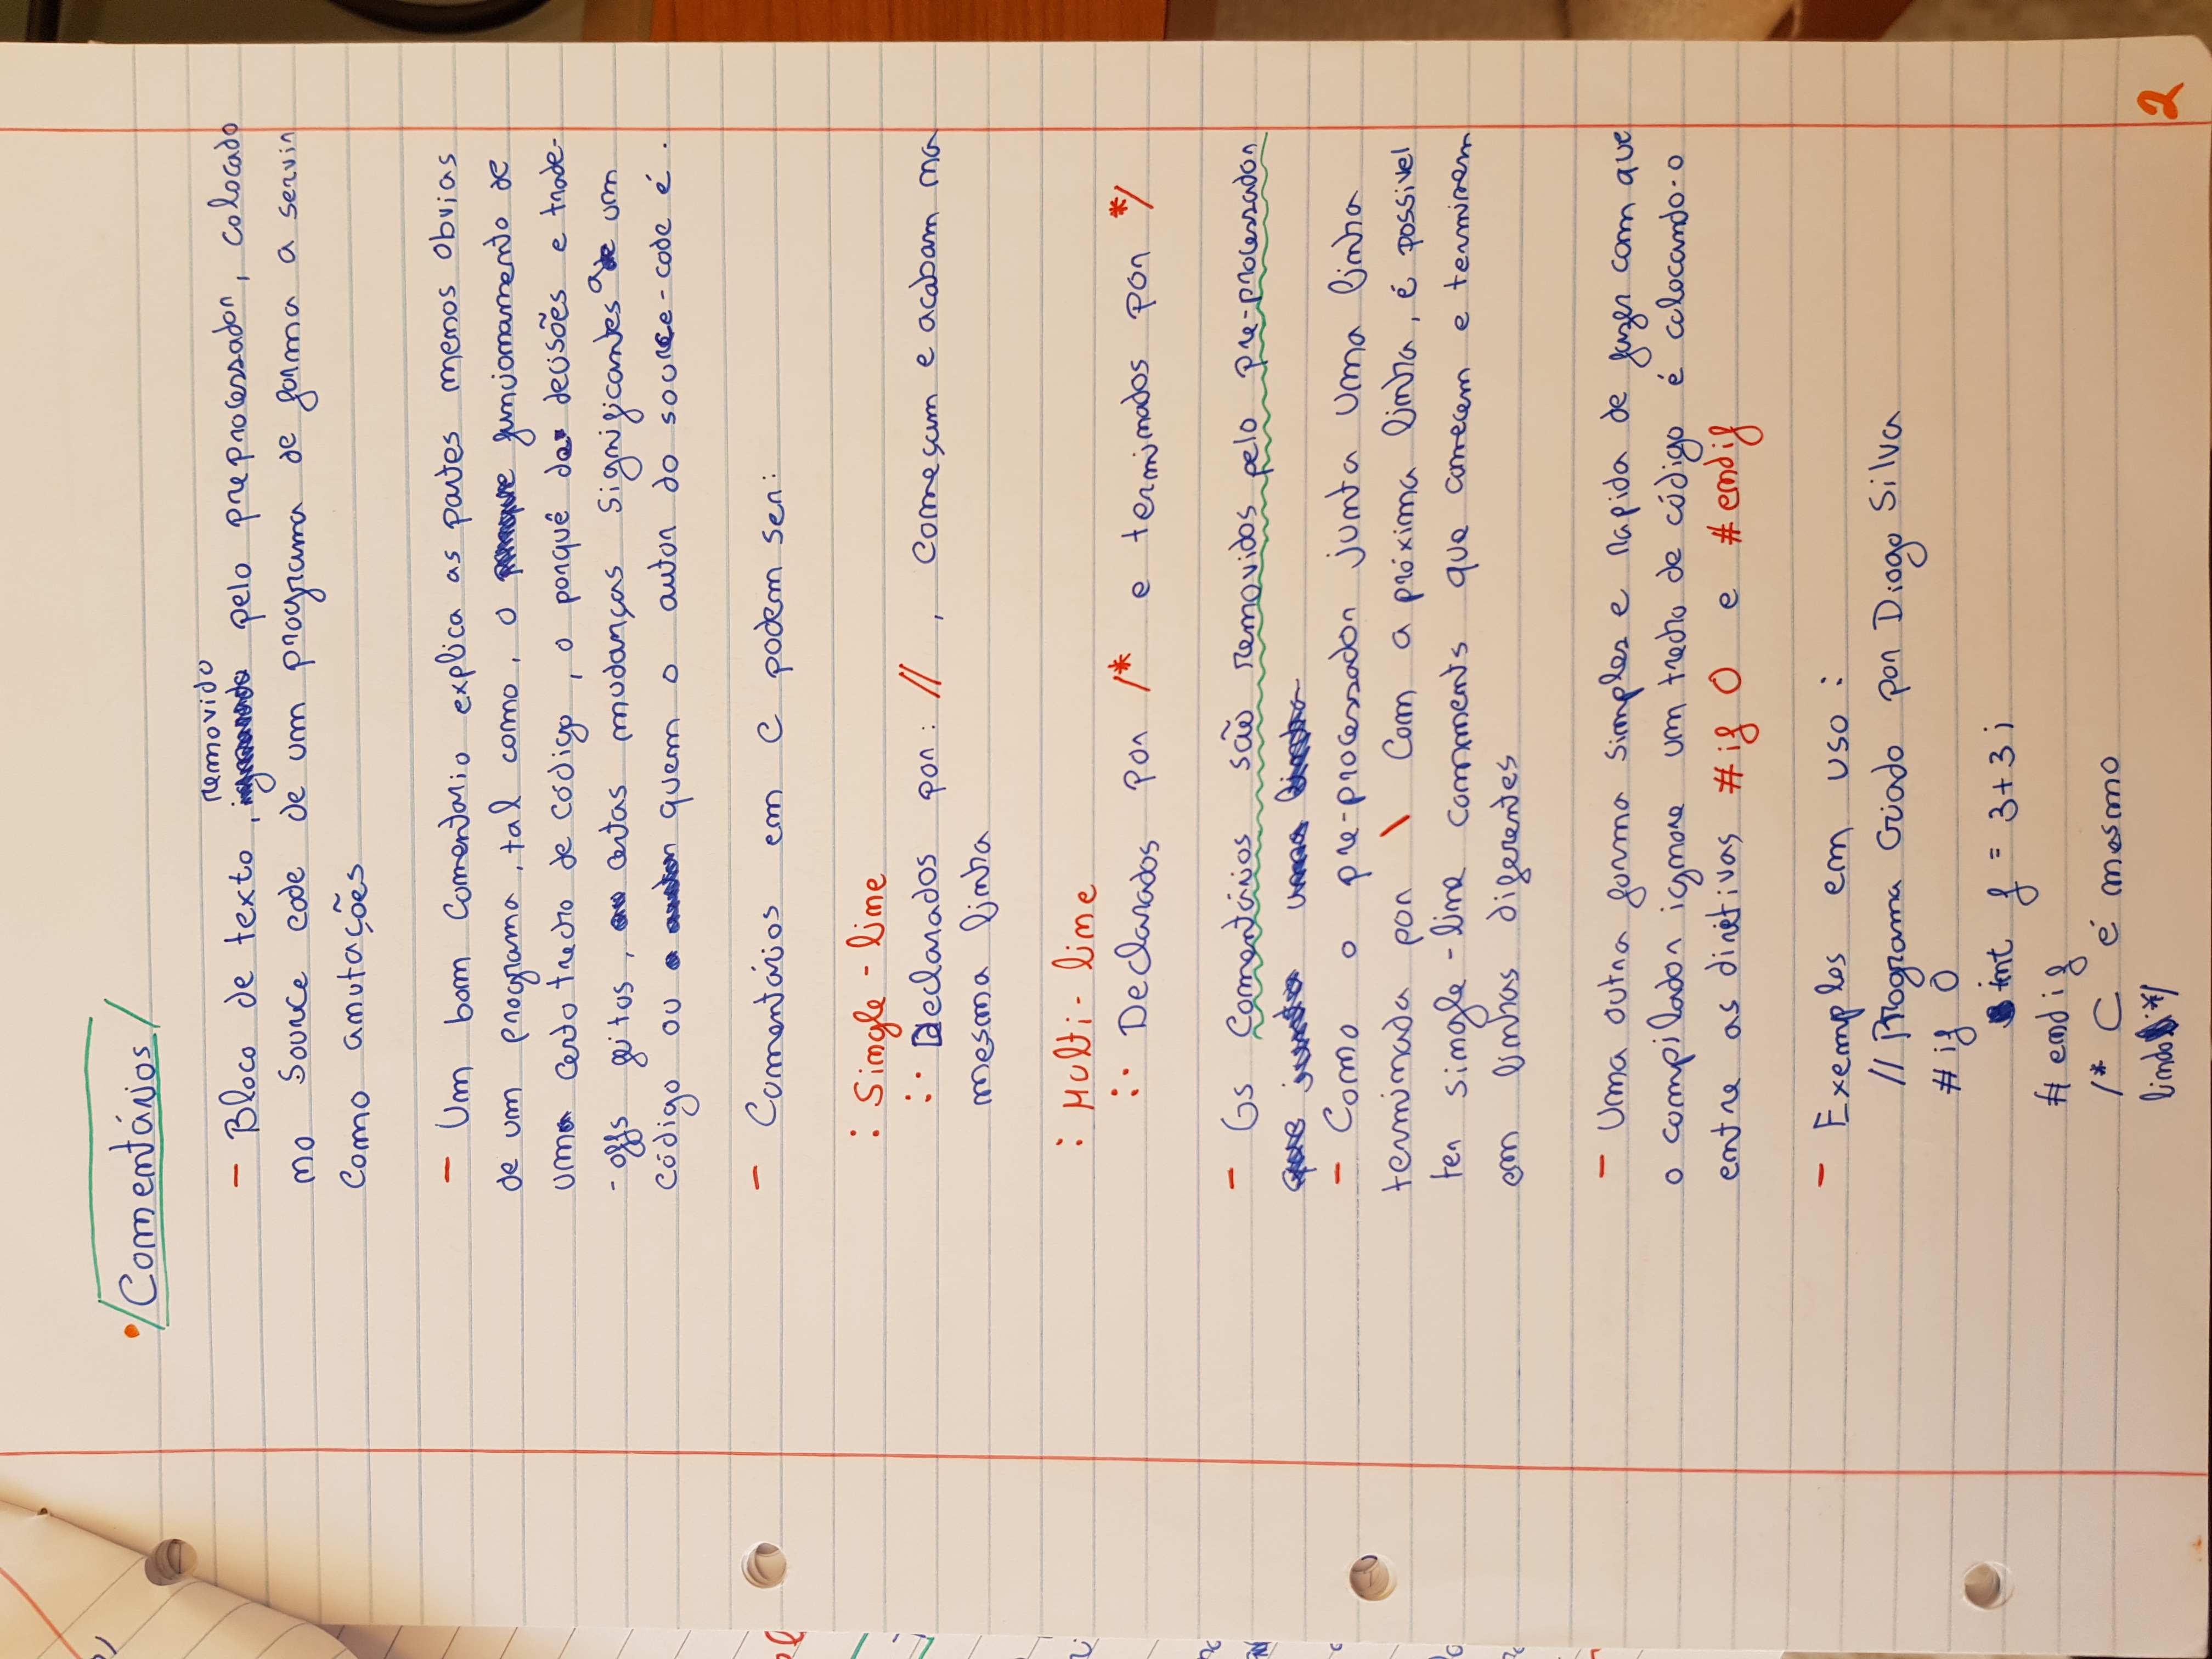 • Comentários
removido
- Bloco de texto, pelo preprocessador, colocado
no source code de um programa de forma a servir
como anutações
- Um bom comentario explica as partes menos obvias
de um programa, tal como, o funcionamento de
um certo trecho de código, o porquê de decisões e trade-
-offs feitos, certas mudanças significantes a um
código ou quem o autor do source-code é.
- Comentários em C podem ser:
: Single-line
:· Declarados por: //, começam e acabam na
mesma linha
: Multi-line
:· Declarados por /* e terminados por */
- Os comentários são removidos pelo pre-processador
- Como o pre-processador junta uma linha
terminada por \ com a próxima linha, é possivel
ter single-line comments que comecem e terminem
em linhas diferentes
- Uma outra forma simples e rapida de fazer com que
o compilador ignore um trecho de código é colocando-o
entre as diretivas #if 0 e #endif
- Exemplos em uso:
// Programa criado por Diogo Silva
#if 0
int f = 3+3;
#endif
/* C é mesmo
lindo */
2